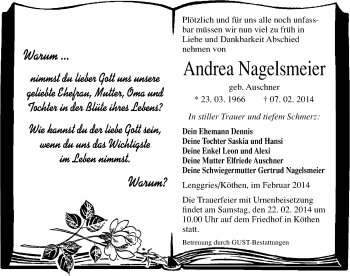 Warum ...
nimmst du lieber Gott uns unsere
geliebte Ehefrau, Mutter, Oma und
Tochter in der Blüte ihres Lebens?
Wie kannst du der liebe Gott sein,
wenn du uns das Wichtigste
im Leben nimmst.
Warum?
Plötzlich und für uns alle noch unfass-
bar müssen wir nun viel zu früh in
Liebe und Dankbarkeit Abschied
nehmen von
Andrea Nagelsmeier
geb. Auschner
* 23. 03. 1966 † 07. 02. 2014
In stiller Trauer und tiefem Schmerz:
Dein Ehemann Dennis
Deine Tochter Saskia und Hansi
Deine Enkel Leon und Alexi
Deine Mutter Elfriede Auschner
Deine Schwiegermutter Gertrud Nagelsmeier
Lenggries/Köthen, im Februar 2014
Die Trauerfeier mit Urnenbeisetzung
findet am Samstag, dem 22. 02. 2014 um
10.00 Uhr auf dem Friedhof in Köthen
statt.
Betreuung durch GUST-Bestattungen